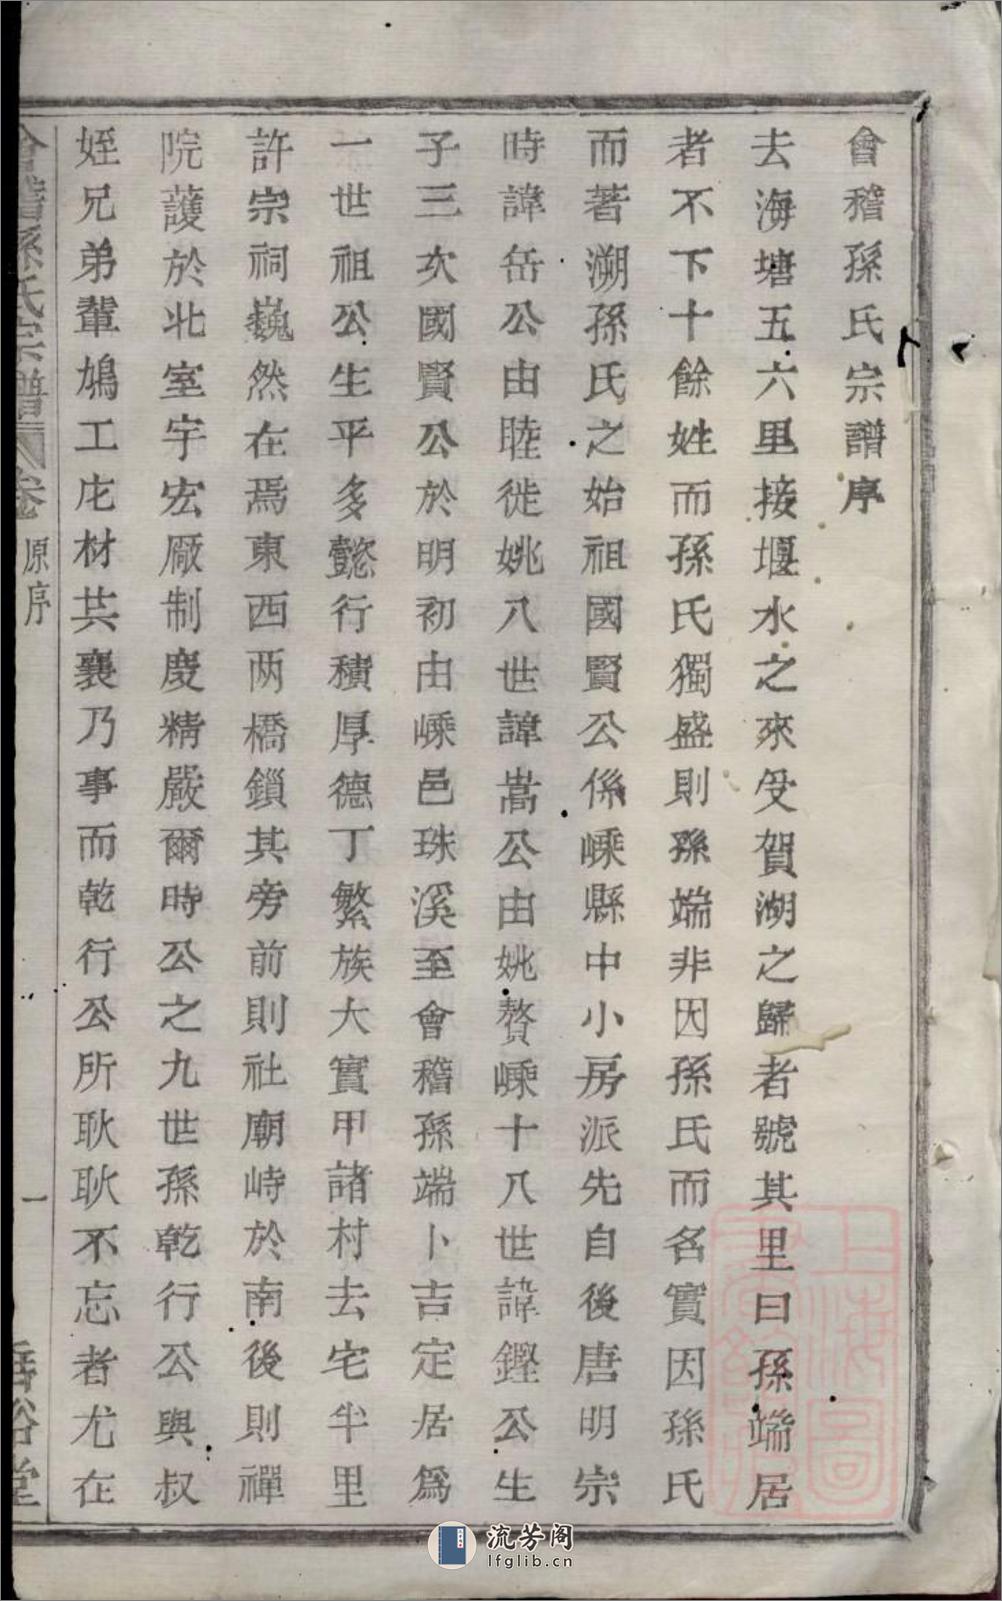 會稽孫氏宗譜序
去海塘五六里接堰水之來受賀湖之歸者號其里曰孫端居
者不下十餘姓而孫氏獨盛則孫端非因孫氏而名實因孫氏
而著溯孫氏之始祖國賢公係嵊縣中小房派先自後唐明宗
時諱岳公由睦徙姚八世諱嵩公由姚贅嵊十八世諱鏗公生
子三次國賢公於明初由嵊邑珠溪至會稽孫端卜吉定居爲
一世祖公生平多懿行積厚德丁繁族大實甲諸村去宅半里
許宗祠巍然在焉東西两橋鎖其旁前則社廟峙於南後則禪
院護於北室宇宏厰制度精嚴爾時公之九世孫乾行公與叔
姪兄弟輩鳩工庀材共襄乃事而乾行公所耿耿不忘者尤在
會稽孫氏宗譜 卷 原序 一 垂裕堂
上海圖書館藏
流芳阁
lfglib.cn